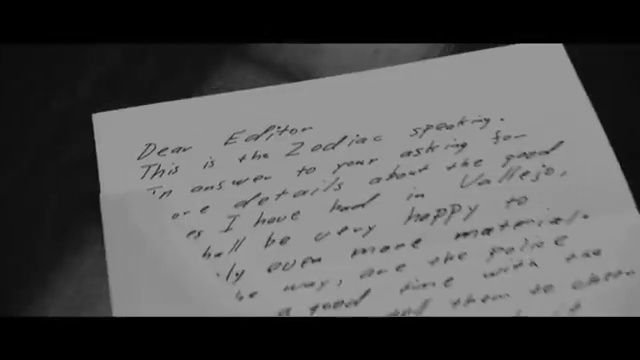 Dear Editor
This is the Zodiac speaking.
In answer to your asking for
ore details about the good
es I have had in Vallejo,
hall be very happy to
ly even more material.
he way, are the police
a good time with the
them to